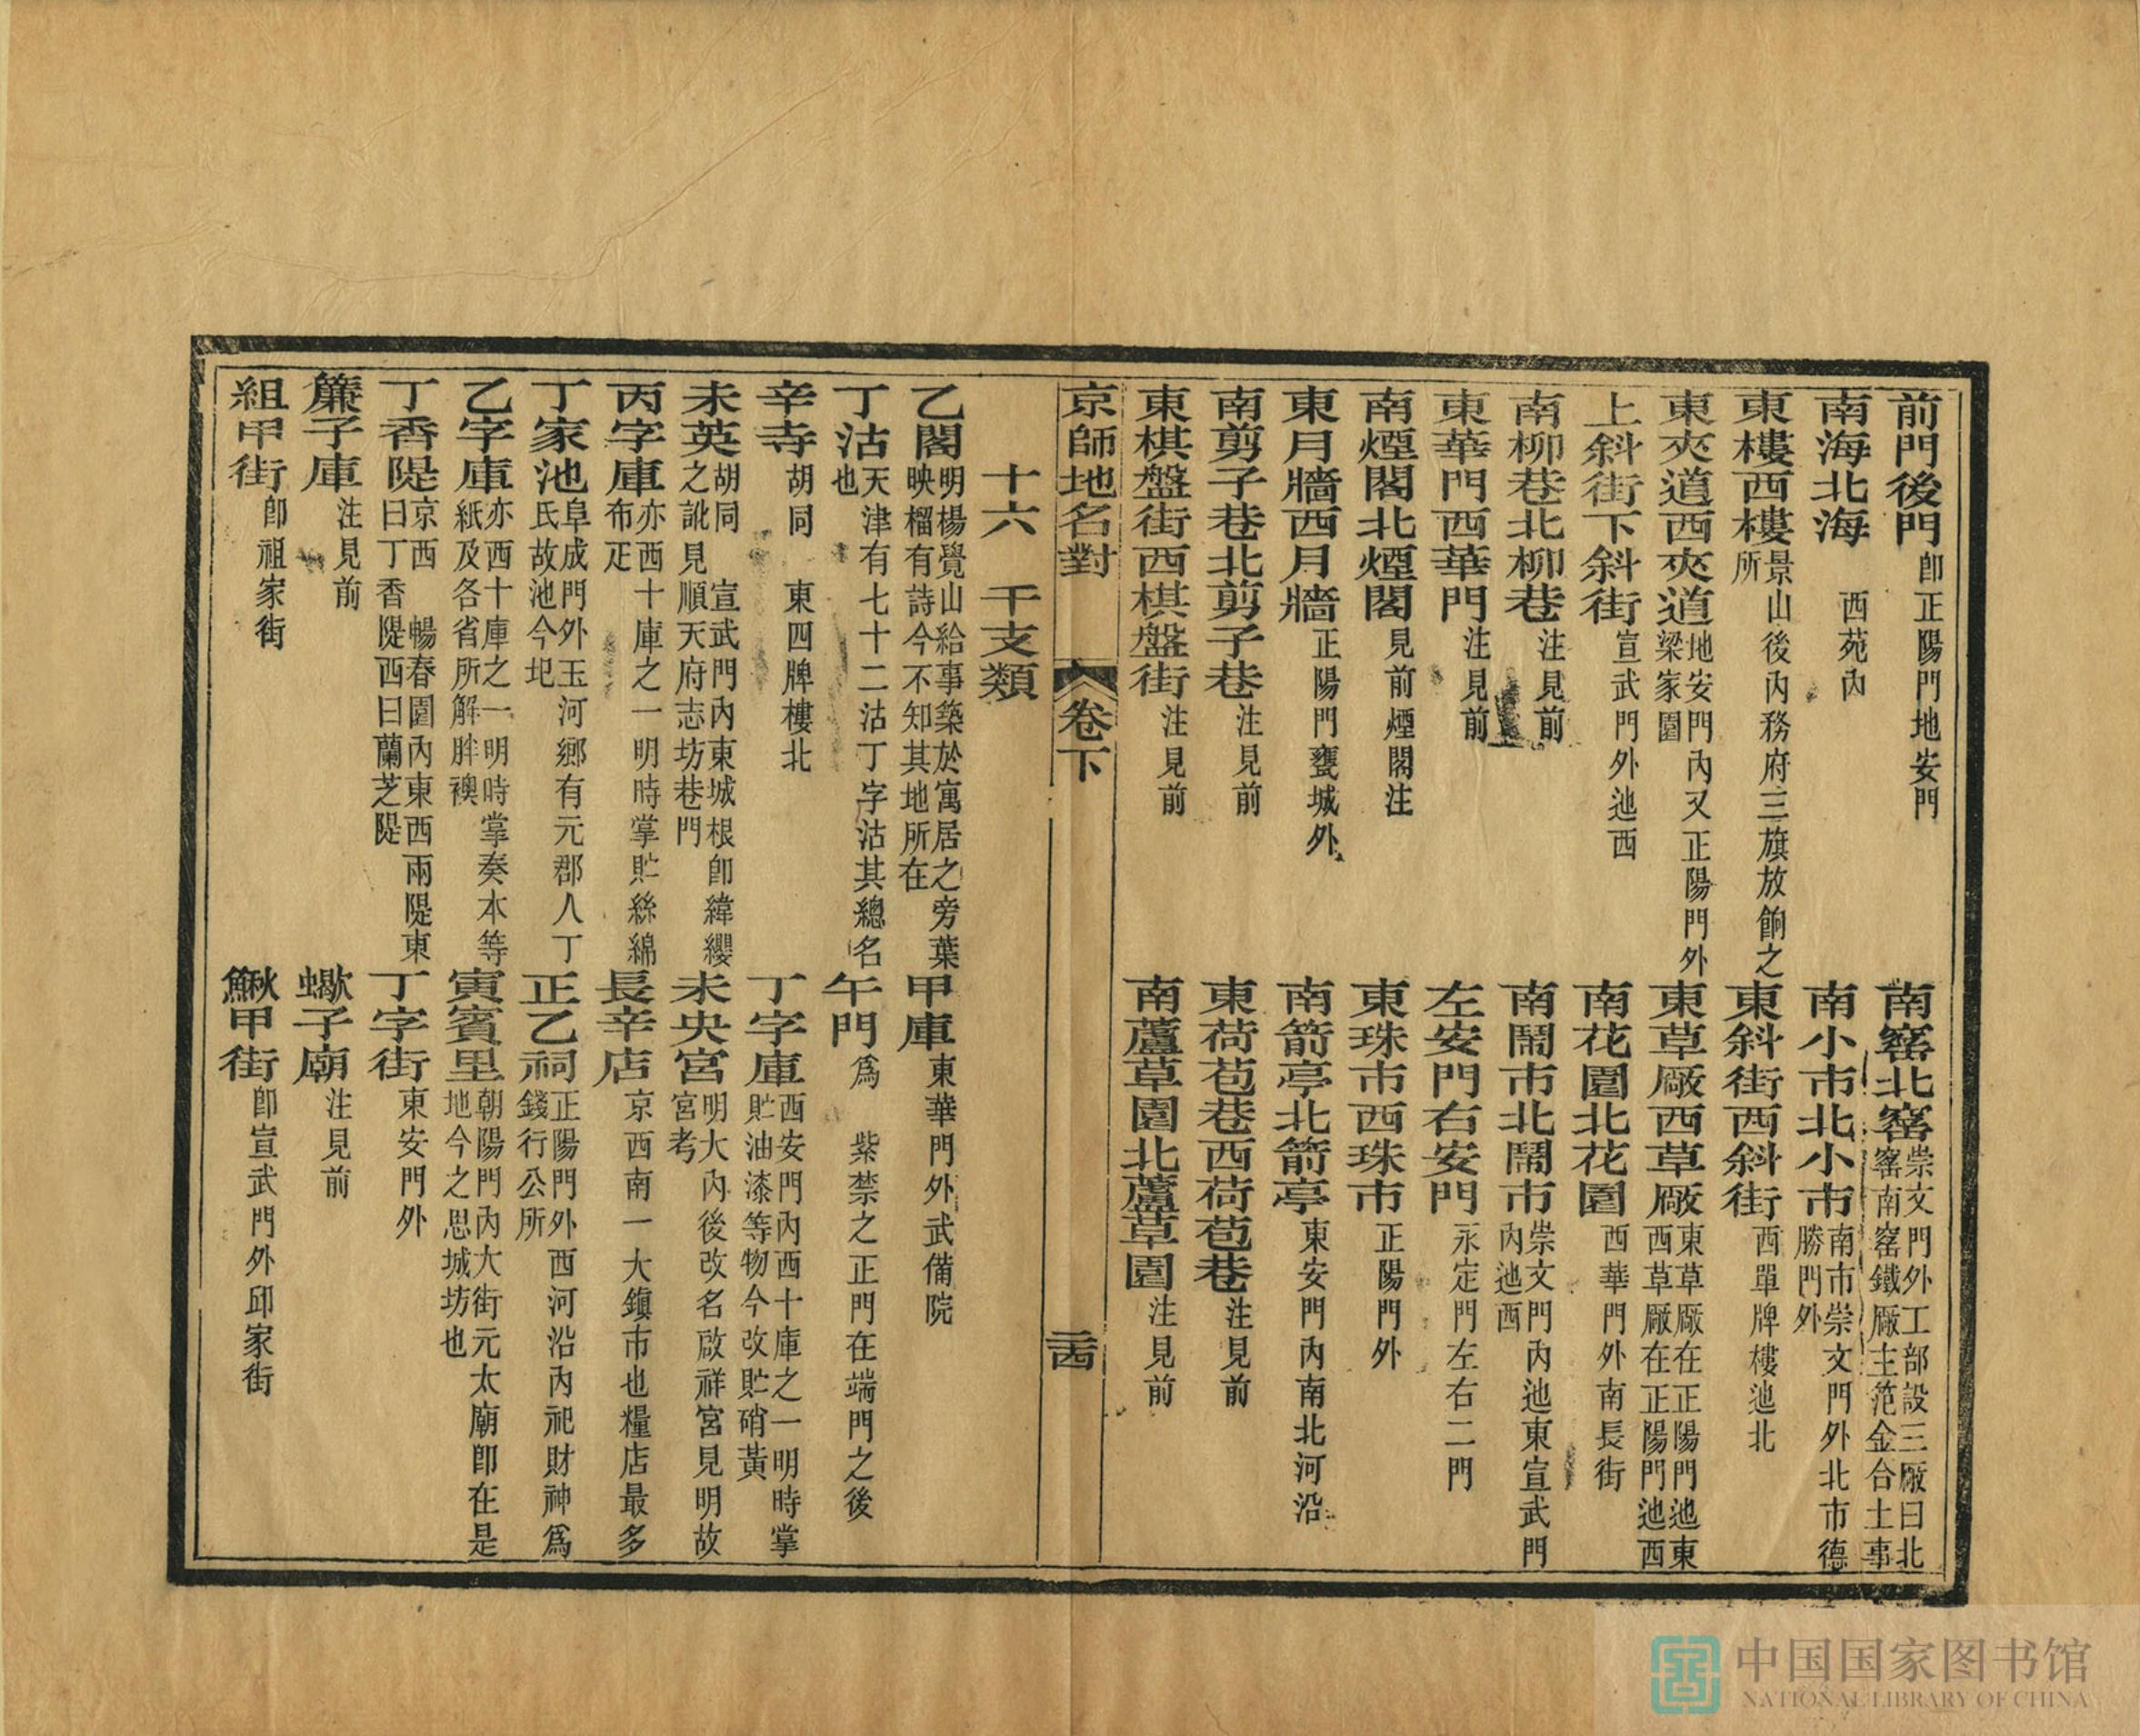 前門後門卽正陽門地安門　南窰北窰崇文門外工部設三厰曰北窰南窰鐵厰主范金合土事
南海北海西苑內　南小市北小市南市崇文門外北市德勝門外
東樓西樓景山後內務府三旗放餉之所　東斜街西斜街西單牌樓迤北
東夾道西夾道地安門內又正陽門外梁家園　東草厰西草厰東草厰在正陽門迤東西草厰在正陽門迤西
上斜街下斜街宣武門外迤西　南花園北花園西華門外南長街
南柳巷北柳巷注見前　南鬧市北鬧市崇文門內迤東宣武門內迤西
東華門西華門注見前　左安門右安門永定門左右二門
南煙閣北煙閣見前煙閣注　東珠市西珠市正陽門外
東月牆西月牆正陽門甕城外　南箭亭北箭亭東安門內南北河沿
南剪子巷北剪子巷注見前　東荷苞巷西荷苞巷注見前
東棋盤街西棋盤街注見前　南蘆草園北蘆草園注見前
京師地名對　卷下　二十四
十六　干支類
乙閣明楊覺山給事築於寓居之旁葉映榴有詩今不知其地所在　甲庫東華門外武備院
丁沽天津有七十二沽丁字沽其總名也　午門爲紫禁之正門在端門之後
辛寺胡同東四牌樓北　丁字庫西安門內西十庫之一明時掌貯油漆等物今改貯硝黃
未英胡同宣武門內東城根卽緯纓之訛見順天府志坊巷門　未央宮明大內後改名啟祥宮見明故宮考
丙字庫亦西十庫之一明時掌貯絲綿布疋　長辛店京西南一大鎮市也糧店最多
丁家池阜成門外玉河鄉有元郡人丁氏故池今圮　正乙祠正陽門外西河沿內祀財神爲錢行公所
乙字庫亦西十庫之一明時掌奏本等紙及各省所解胖襖　寅賓里朝陽門內大街元太廟卽在是地今之思城坊也
丁香隄京西暢春園內東西兩隄東曰丁香隄西曰蘭芝隄　丁字街東安門外
簾子庫注見前　蠍子廟注見前
組甲街卽祖家街　鰍甲街卽宣武門外邱家街
中国国家图书馆
NATIONAL LIBRARY OF CHINA